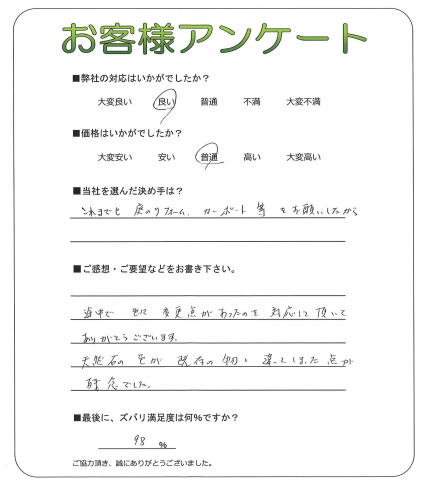 お客様アンケート
■弊社の対応はいかがでしたか？
大変良い 良い 普通 不満 大変不満
■価格はいかがでしたか？
大変安い 安い 普通 高い 大変高い
■当社を選んだ決め手は？
これまでも 庭のリフォーム、カーポート 等 をお願いしたから
■ご感想・ご要望などをお書き下さい。
途中で 色々 変更点があったのを 対応して頂いて
ありがとうございます。
天然石の 色が 既存の物と 違ってしまった点が
残念でした。
■最後に、ズバリ満足度は何％ですか？
98 ％
ご協力頂き、誠にありがとうございました。